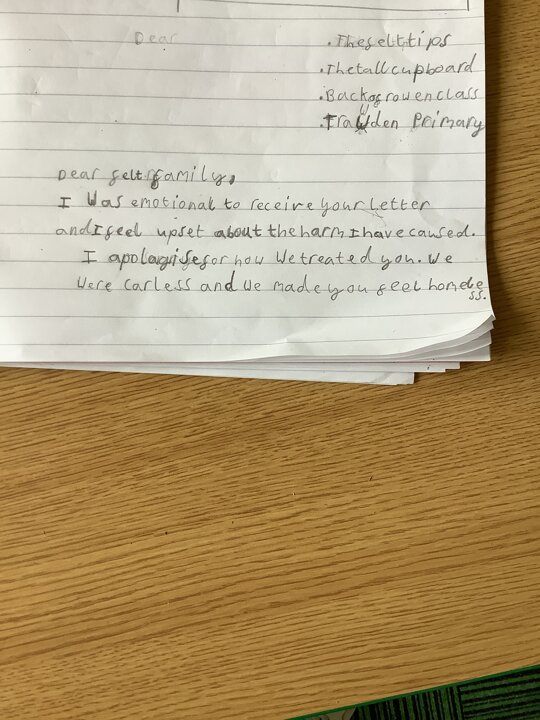 Dear
. The felt tips
. The tall cupboard
. Back of rowen class
. Trawden Primary
Dear felt family,
I was emotional to receive your letter
and I feel upset about the harm I have caused.
I apolagise for how we treated you. We
were carless and we made you feel homeless.